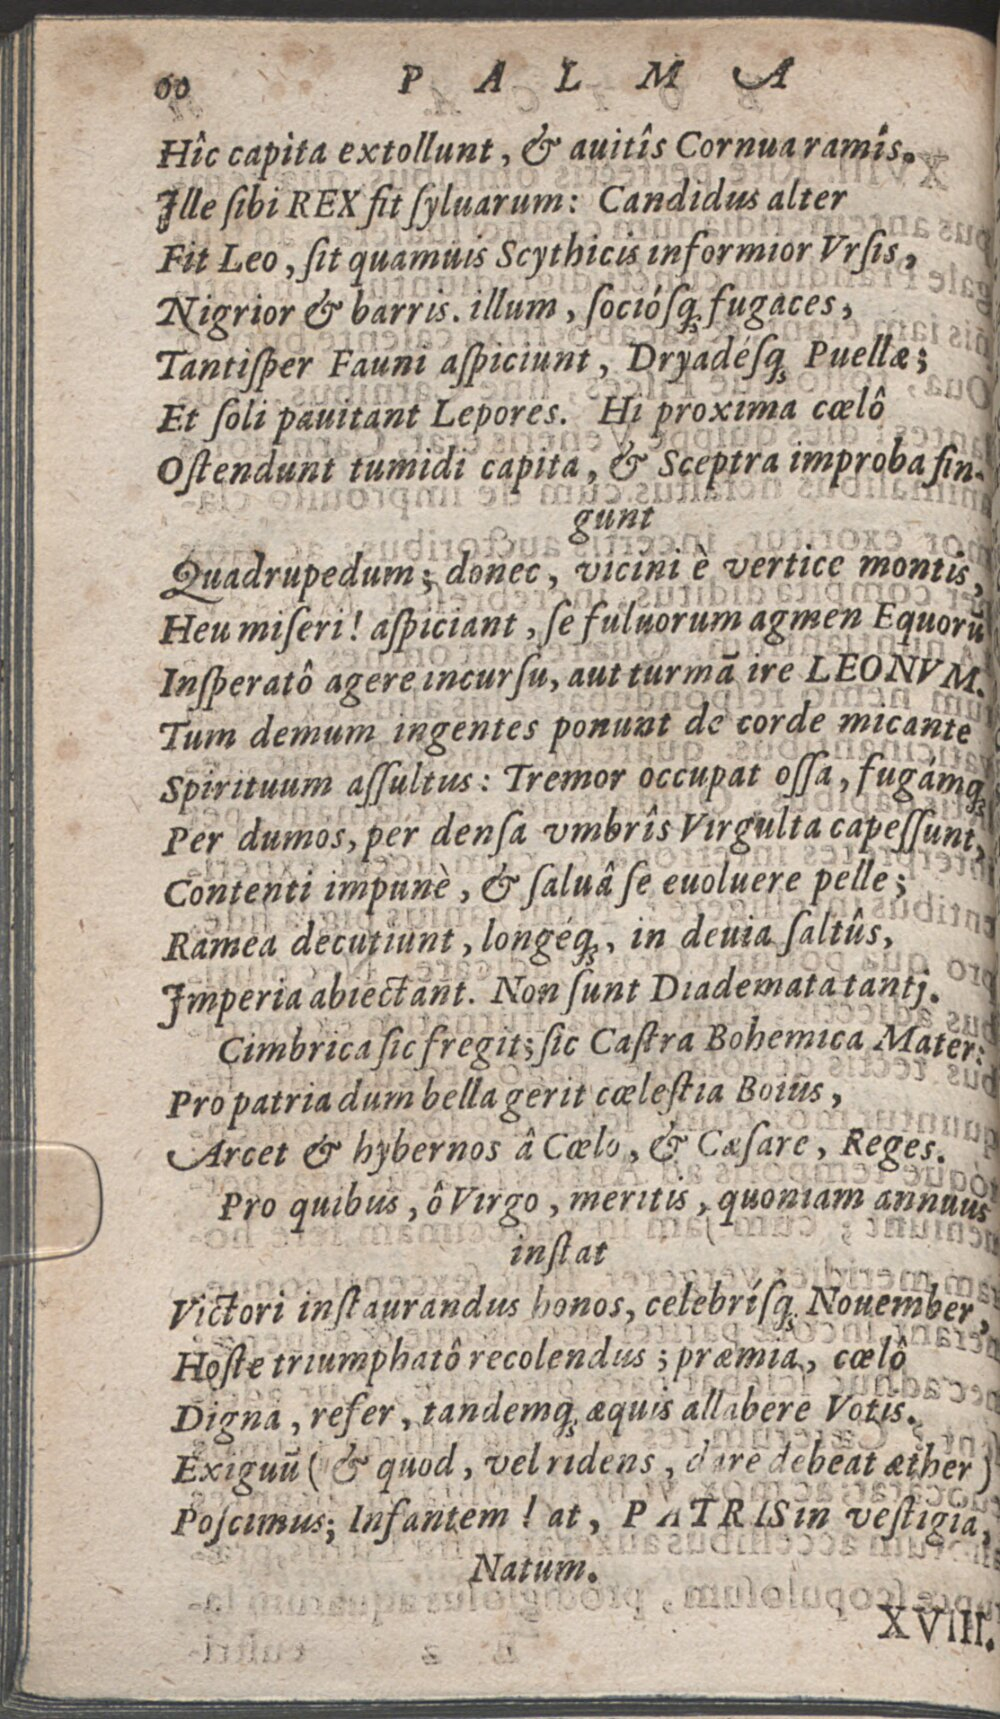 60 PALMA
Hîc capita extollunt, & auitîs Cornua ramîs.
Ille ſibi REX fit ſyluarum: Candidus alter
Fit Leo, ſit quamuis Scythicis informior Vrſis,
Nigrior & barris. illum, ſociósq; fugaces,
Tantiſper Fauni aſpiciunt, Dryadéſq; Puellæ;
Et ſoli pauitant Lepores. Hi proxima cœlô
Oſtendunt tumidi capita, & Sceptra improba fin-
gunt
Quadrupedum; donec, vicini è vertice montis,
Heu miſeri! aſpiciant, ſe fuluorum agmen Equorū
Inſperatô agere incurſu, aut turmā ire LEONVM.
Tum demum ingentes ponunt de corde micante
Spirituum aſſultus: Tremor occupat oſſa, fugámq;
Per dumos, per denſa vmbrîs Virgulta capeſſunt,
Contenti impunè, & ſaluâ ſe euoluere pelle;
Ramea decutiunt, longéq;, in deuia ſaltûs,
Imperia abiectant. Non ſunt Diademata tantj.
Cimbrica ſic fregit; ſic Caſtra Bohemica Mater:
Pro patria dum bella gerit cœleſtia Boius,
Arcet & hybernos â Cœlo, & Cæſare, Reges.
Pro quibus, ô Virgo, meritis, quoniam annuus
inſtat
Victori inſtaurandus honos, celebríſq; Nouember,
Hoſte triumphatô recolendus; præmia, cœlô
Digna, refer, tandemq; æquis allabere Votis.
Exiguū (& quod, vel ridens, dare debeat æther)
Poſcimus; Infantem! at, PATRIS in veſtigia,
Natum.
XVIII.